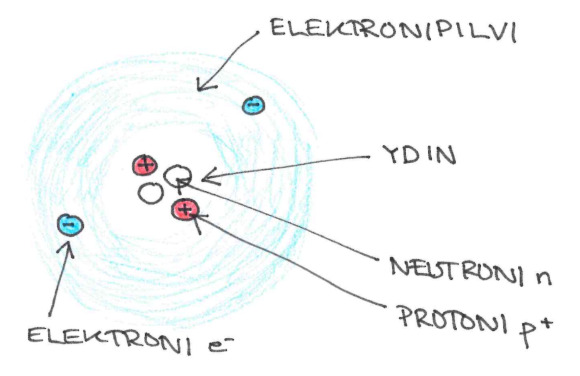 ELEKTRONIPILVI
-
+
YDIN
+
-
NEUTRONI n
PROTONI p⁺
ELEKTRONI e⁻